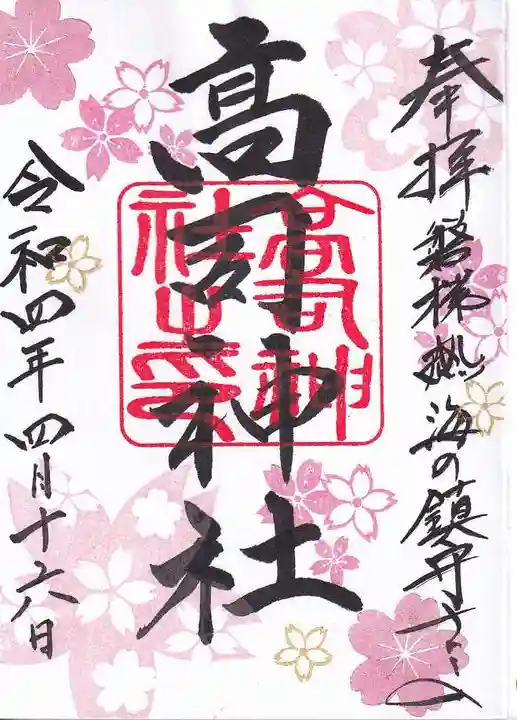 奉拝 磐梯熱海の鎮守さま
高司神社
高司神
社之印
令和四年四月十六日